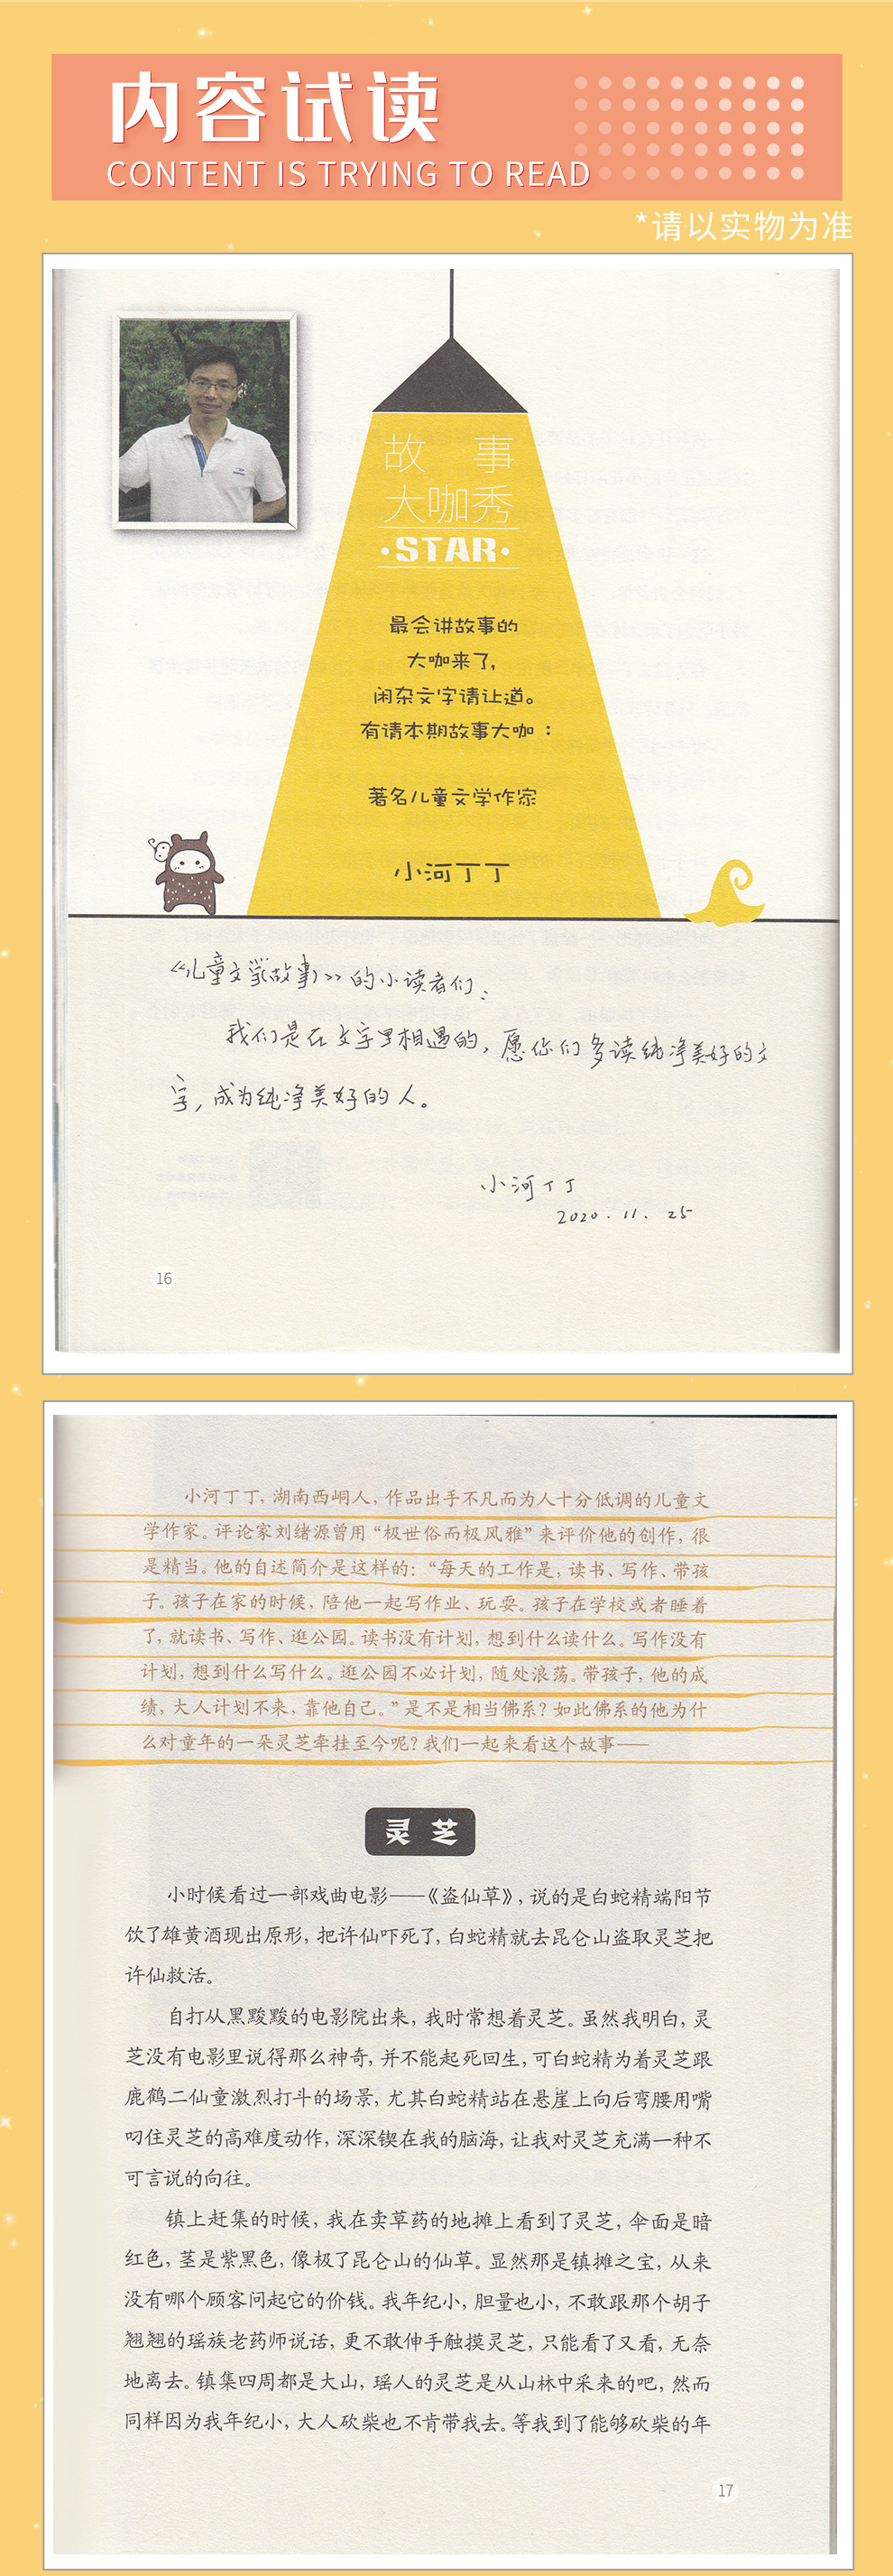 内容试读
CONTENT IS TRYING TO READ
*请以实物为准
故 事
大咖秀
·STAR·
最会讲故事的
大咖来了，
闲杂文字请让道。
有请本期故事大咖：
著名儿童文学作家
小河丁丁
《儿童文学(故事)》的小读者们：
我们是在文字里相遇的，愿你们多读纯净美好的文
字，成为纯净美好的人。
小河丁丁
2020.11.25
16
小河丁丁，湖南西峒人，作品出手不凡而为人十分低调的儿童文
学作家。评论家刘绪源曾用“极世俗而极风雅”来评价他的创作，很
是精当。他的自述简介是这样的：“每天的工作是，读书、写作、带孩
子。孩子在家的时候，陪他一起写作业、玩耍。孩子在学校或者睡着
了，就读书、写作、逛公园。读书没有计划，想到什么读什么。写作没有
计划，想到什么写什么。逛公园不必计划，随处浪荡。带孩子，他的成
绩，大人计划不来，靠他自己。”是不是相当佛系？如此佛系的他为什
么对童年的一朵灵芝牵挂至今呢？我们一起来看这个故事——
灵芝
小时候看过一部戏曲电影——《盗仙草》，说的是白蛇精端阳节
饮了雄黄酒现出原形，把许仙吓死了，白蛇精就去昆仑山盗取灵芝把
许仙救活。
自打从黑黢黢的电影院出来，我时常想着灵芝。虽然我明白，灵
芝没有电影里说得那么神奇，并不能起死回生，可白蛇精为着灵芝跟
鹿鹤二仙童激烈打斗的场景，尤其白蛇精站在悬崖上向后弯腰用嘴
叼住灵芝的高难度动作，深深锲在我的脑海，让我对灵芝充满一种不
可言说的向往。
镇上赶集的时候，我在卖草药的地摊上看到了灵芝，伞面是暗
红色，茎是紫黑色，像极了昆仑山的仙草。显然那是镇摊之宝，从来
没有哪个顾客问起它的价钱。我年纪小，胆量也小，不敢跟那个胡子
翘翘的瑶族老药师说话，更不敢伸手触摸灵芝，只能看了又看，无奈
地离去。镇集四周都是大山，瑶人的灵芝是从山林中采来的吧，然而
同样因为我年纪小，大人砍柴也不肯带我去。等我到了能够砍柴的年
17